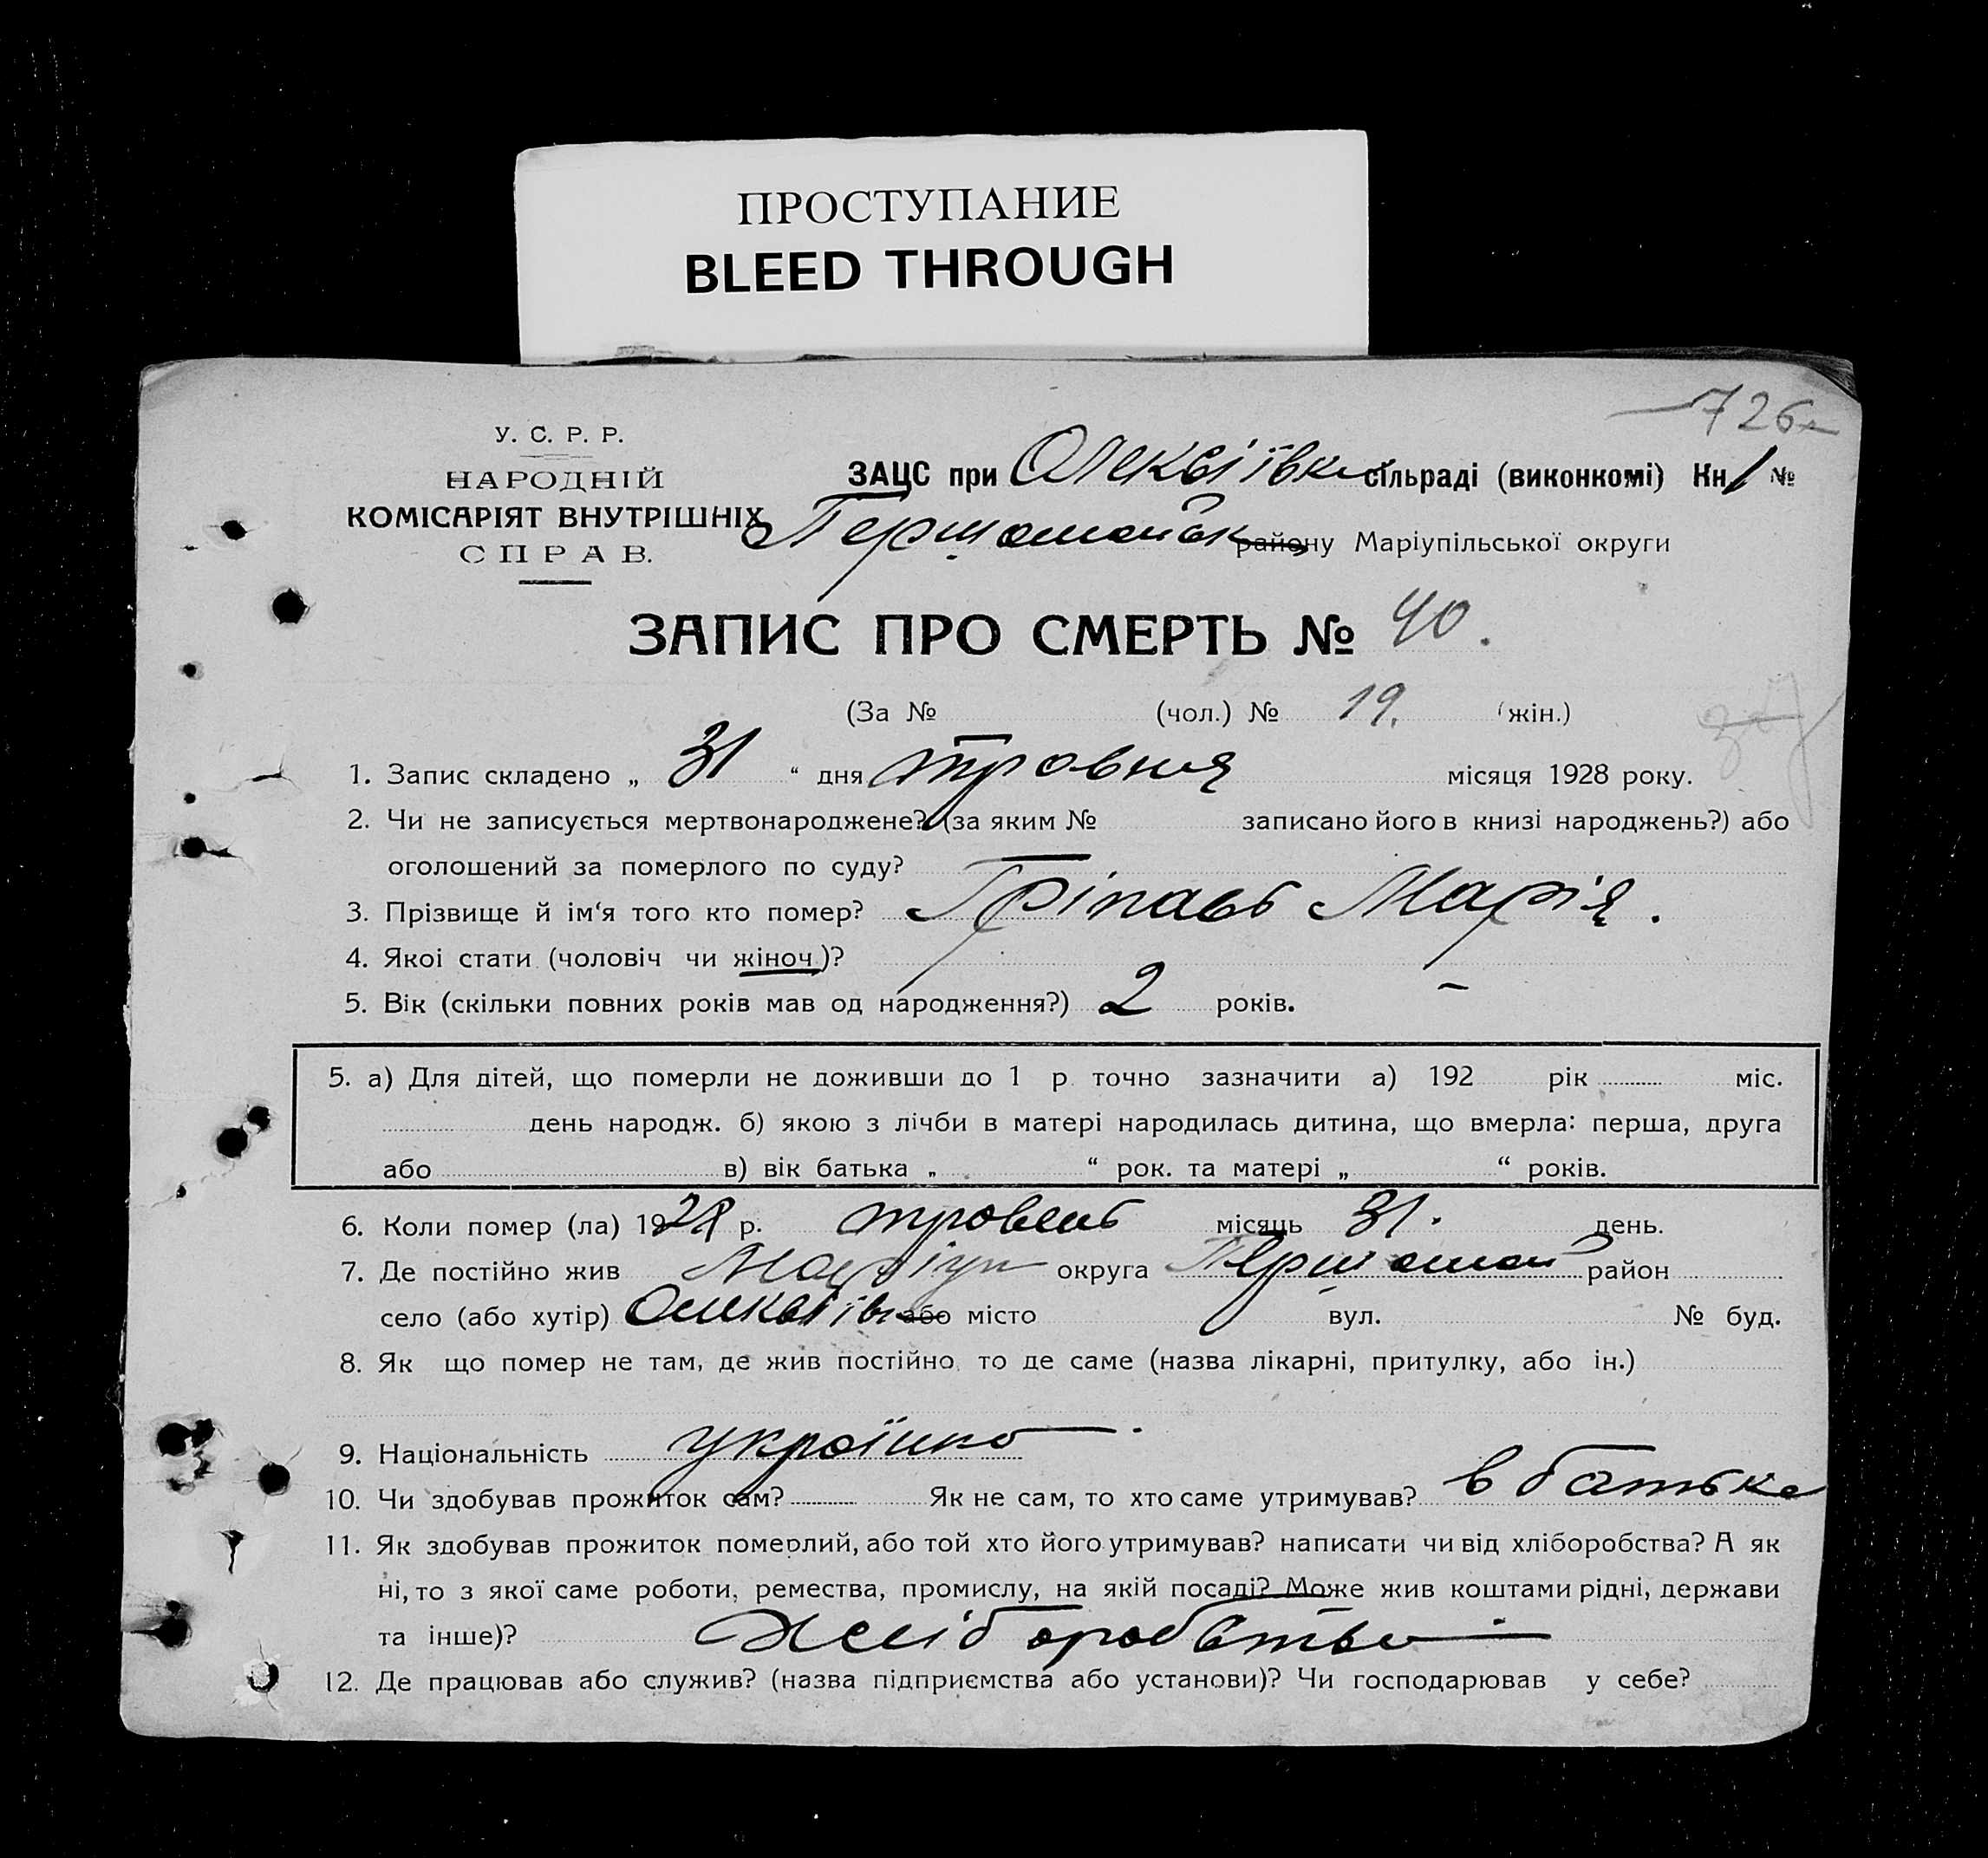 ПРОСТУПАНИЕ
BLEED THROUGH
726
У. С. Р. Р.
НАРОДНІЙ
КОМІСАРІЯТ ВНУТРІШНІХ
СПРАВ.
ЗАЦС при Олексіївк сільраді (виконкомі) Кн 1 №
Першомайськ району Маріупільської округи
ЗАПИС ПРО СМЕРТЬ № 40.
(За № (чол.) № 19. (жін.)
1. Запис складено „ 31 “ дня травня місяця 1928 року.
2. Чи не записується мертвонароджене? (за яким № записано його в книзі народжень?) або
оголошений за померлого по суду?
3. Прізвище й ім‘я того кто помер? Марія.
4. Якоі стати (чоловіч чи жіноч)?
5. Вік (скільки повних років мав од народження?) 2 років.
5. а) Для дітей, що померли не доживши до 1 р точно зазначити а) 192 рік міс.
день народж. б) якою з лічби в матері народилась дитина, що вмерла: перша, друга
або в) вік батька „ “ рок. та матері „ “ років.
6. Коли помер (ла) 1928 р. травень місяць 31. день.
7. Де постійно жив Маріуп округа Першомай район
село (або хутір) Олексіївк або місто вул. № буд.
8. Як що помер не там, де жив постійно то де саме (назва лікарні, притулку, або ін.)
9. Національність українка
10. Чи здобував прожиток сам? Як не сам, то хто саме утримував? в батька
11. Як здобував прожиток померлий, або той хто його утримував? написати чи від хліборобства? А як
ні, то з якої саме роботи, ремества, промислу, на якій посаді? Може жив коштами рідні, держави
та інше)? хліборобство
12. Де працював або служив? (назва підприємства або установи)? Чи господарював у себе?